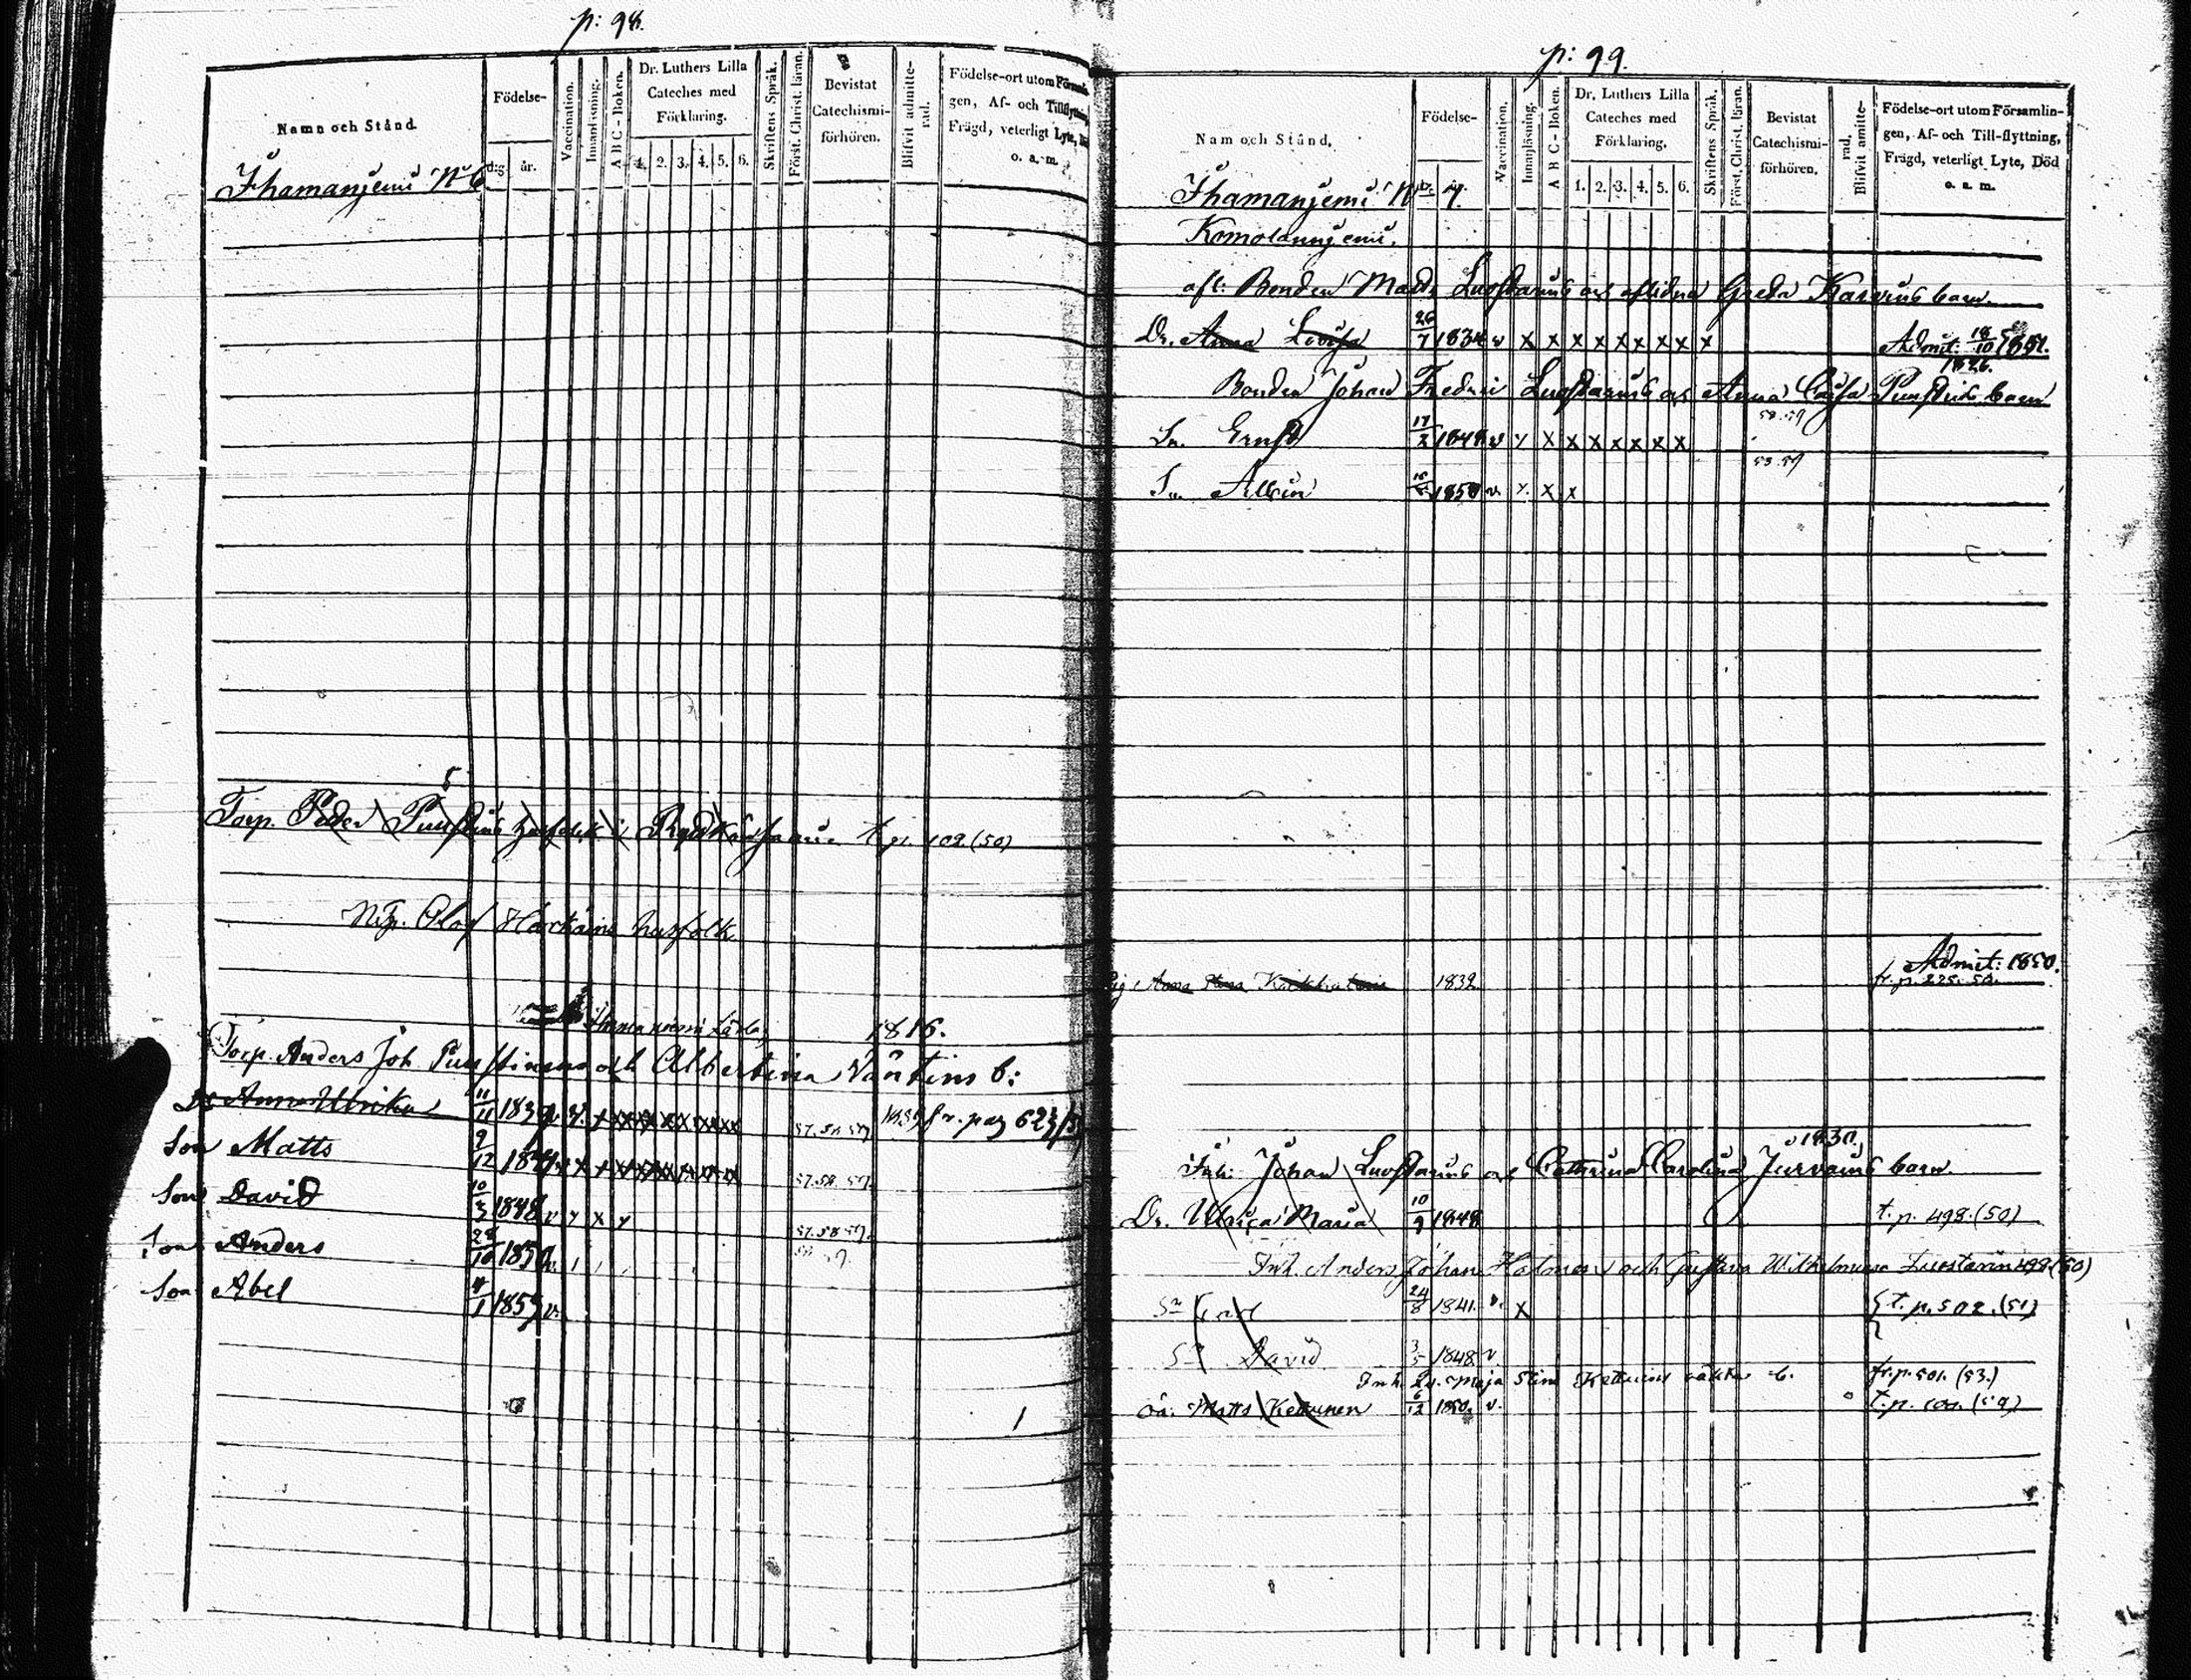 p: 98.
Namn och Stånd.
Födelse-
dag
år.
Vaccination.
Innanläsning.
A B C - Boken.
Dr. Luthers Lilla
Cateches med
Förklaring.
1. 2. 3. 4. 5. 6.
Skriftens Språk.
Först. Christ. läran.
Bevistat
Catechismi-
förhören.
Blifvit admitte-
rad.
Födelse-ort utom Församlin-
gen, Af- och Tillflyttning,
Frägd, veterligt Lyte, Död
o. a. m.
Ihamaniemi No 6
5
Torp. Peder Puustinens husfolk i t. p. 102 (50)
Olof Härkäins husfolk
1816.
Torp. Anders Joh Puustinens och Albertina Väntins b:
Dr Anna Ulrika 11/11 1839 v 57.58.59 fr. pag 623
Son Matts 9/12 57.58.59.
Son David 10/3 1848 v x x 57.58.59.
Son Anders 29/10
Son Abel 4/1 v.
p: 99.
Nam och Stånd,
Födelse-
Vaccination.
Innanläsning.
A B C - Boken.
Dr. Luthers Lilla
Cateches med
Förklaring.
1. 2. 3. 4. 5. 6.
Skriftens Språk.
Först. Christ. läran.
Bevistat
Catechismi-
förhören.
Blifvit amitte-
rad.
Födelse-ort utom Församlin-
gen, Af- och Till-flyttning,
Frägd, veterligt Lyte, Död
o. a. m.
Ihamaniemi No 7.
afl: Bonden Matts Luostarins och aflidna Greta barn.
Dr. Anna Lovisa 26/7 1834 v x x x x x x x x x Admit: 18/10 1851.
1826.
Bonden Johan Fredric Luostarins och Anna Puustins barn
58.59
Sn. Ernst 17/2 v x x x x x x x x
58.59
Sn. Albin v x x x
Admit: 1850.
Pig. Anna Stina 1832 fr. p. 225. 50.
1830.
Inh: Johan Luostarins och Cathrina Carolina Jurvains barn.
Dr. Ulrica Maria 10/9 1848 t. p. 498. (50)
Inh. Anders Johan Holmen och Gustava Wilhelmina Luostarin 498 (50)
Sn Carl 24/8 1841. v. x t. p. 502. (51)
Sn David 3/5 1848 v.
Inh. Maja Stina Kettunens b. fr. p. 501. (53.)
oä. Matts Kettunen 6/12 1850. v. t. p. (59)